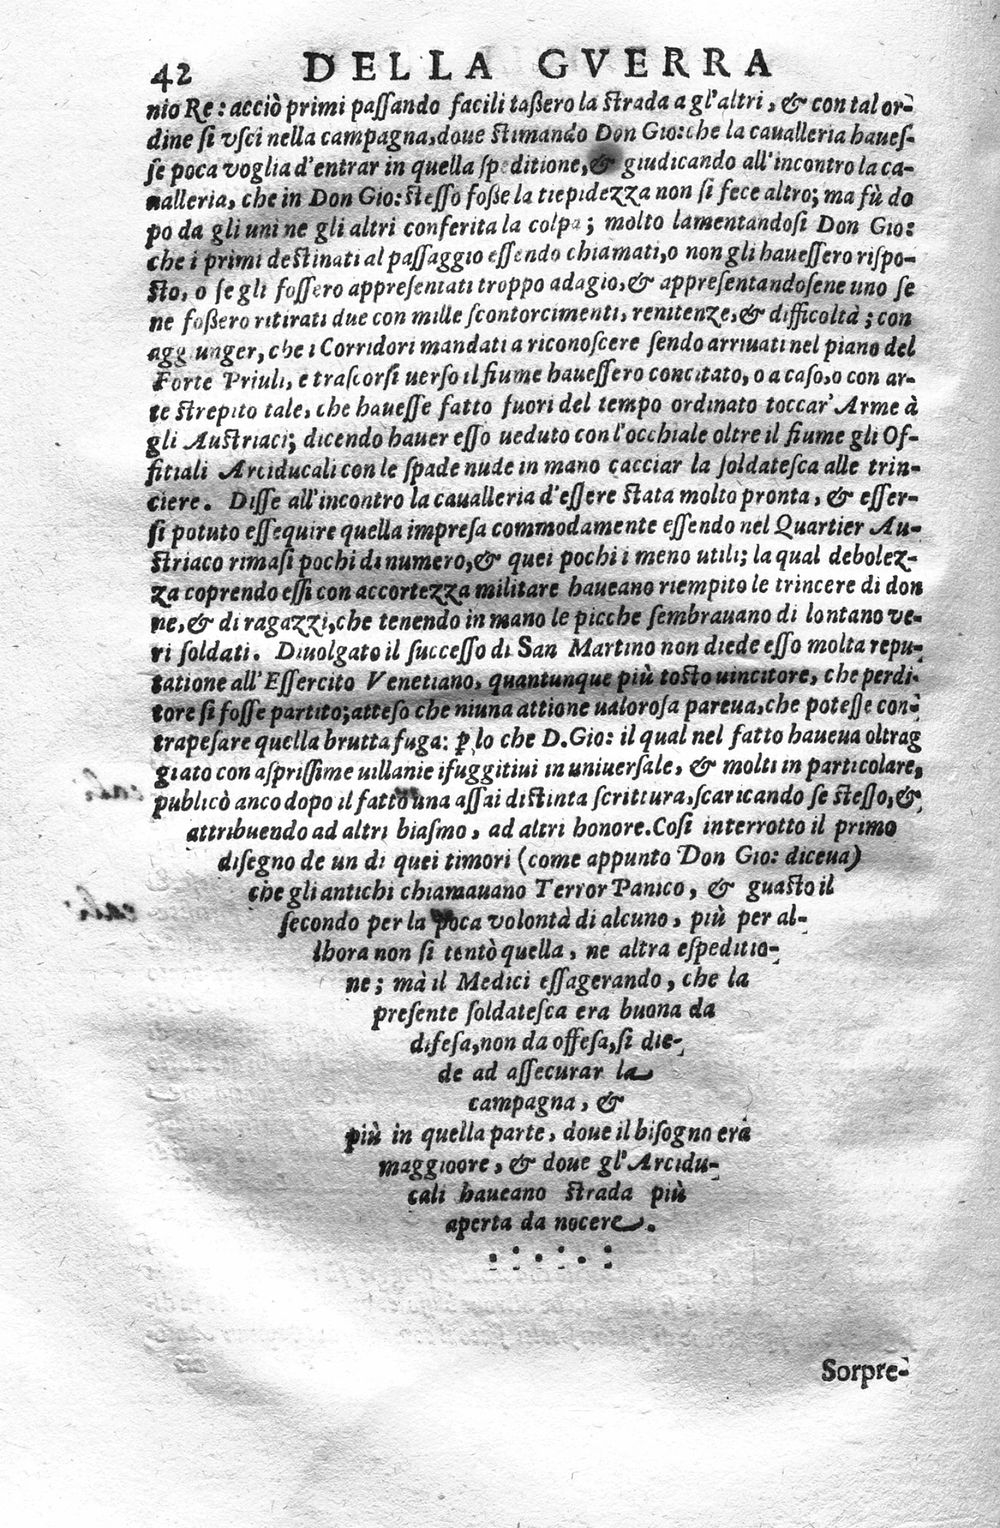 42 DELLA GVERRA
nio Re: acciò primi passando facili taßero la strada a gl'altri, & con tal or-
dine si vsci nella campagna, doue stimando Don Gio: che la caualleria haues-
se poca voglia d'entrar in quella speditione, & giudicando all'incontro la ca-
ualleria, che in Don Gio: stesso foße la tiepidezza non si fece altro; ma fù do
po da gli uni ne gli altri conferita la colpa; molto lamentandosi Don Gio:
che i primi destinati al passaggio essendo chiamati, o non gli hauessero rispo-
sto, o se gli fossero appresentati troppo adagio, & appresentandosene uno se
ne foßero ritirati due con mille scontorcimenti, renitenze, & difficoltà; con
aggiunger, che i Corridori mandati a riconoscere sendo arriuati nel piano del
Forte Priuli, e trascorsi uerso il fiume hauessero concitato, o a caso, o con ar-
te strepito tale, che hauesse fatto fuori del tempo ordinato toccar' Arme à
gli Austriaci; dicendo hauer esso ueduto con l'occhiale oltre il fiume gli Of-
fitiali Arciducali con le spade nude in mano cacciar la soldatesca alle trin-
ciere. Disse all'incontro la caualleria d'essere stata molto pronta, & esser-
si potuto essequire quella impresa commodamente essendo nel Quartier Au-
striaco rimasi pochi di numero, & quei pochi i meno utili; la qual debolez-
za coprendo essi con accortezza militare haueano riempito le trincere di don
ne, & di ragazzi, che tenendo in mano le picche sembrauano di lontano ve-
ri soldati. Diuolgato il successo di San Martino non diede esso molta repu-
tatione all'Essercito Venetiano, quantunque più tosto uincitore, che perdi-
tore si fosse partito; atteso che niuna attione ualorosa pareua, che potesse con-
trapesare quella brutta fuga: ꝑ lo che D. Gio: il qual nel fatto haueua oltrag
giato con asprissime uillanie i fuggitiui in uniuersale, & molti in particolare,
publicò anco dopo il fatto una assai distinta scrittura, scaricando se stesso, &
attribuendo ad altri biasmo, ad altri honore. Così interrotto il primo
disegno de un di quei timori (come appunto Don Gio: diceua)
che gli antichi chiamauano Terror Panico, & guasto il
secondo per la poca volontà di alcuno, più per al-
lhora non si tentò quella, ne altra espeditio-
ne; mà il Medici essagerando, che la
presente soldatesca era buona da
difesa, non da offesa, si die-
de ad assecurar la
campagna, &
più in quella parte, doue il bisogno era
maggioore, & doue gl'Arcidu-
cali haueano strada più
aperta da nocere.
Sorpre-